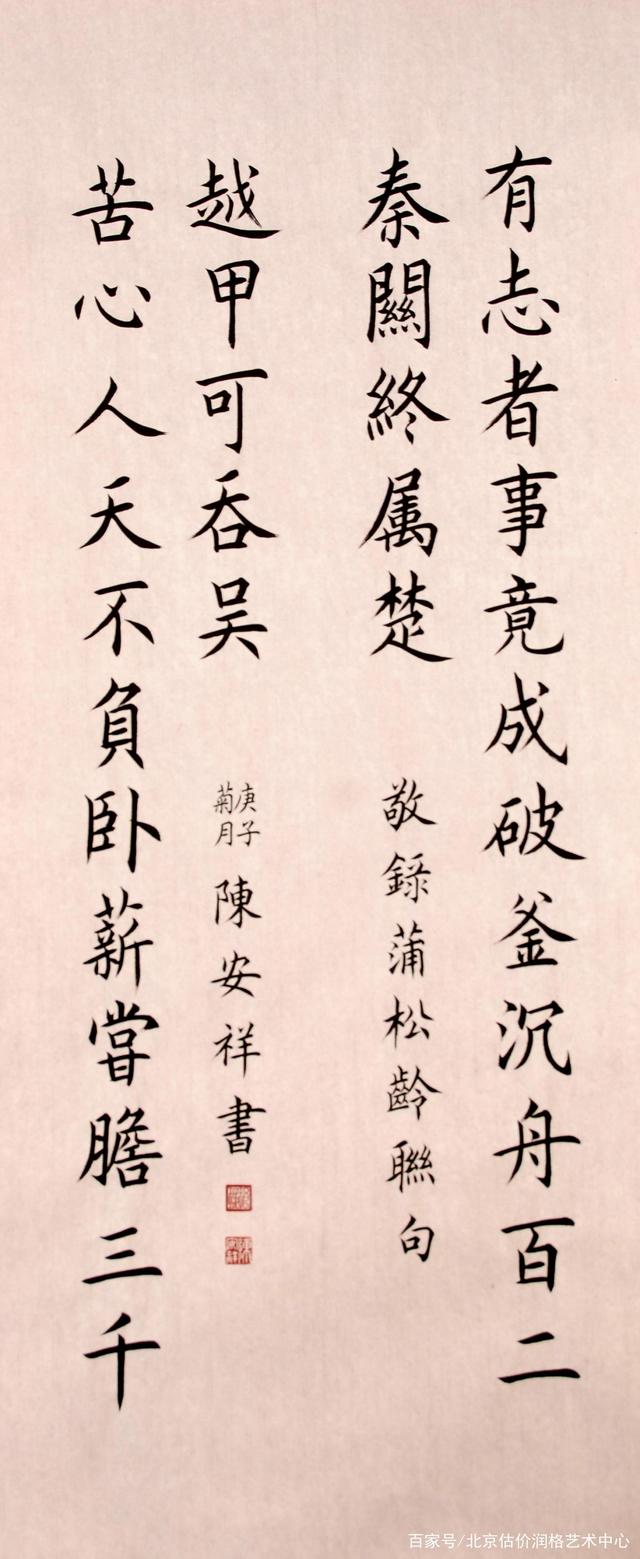 有志者事竟成破釜沉舟百二
秦關終属楚
敬錄蒲松齡聯句
苦心人天不負卧薪嘗膽三千
越甲可吞吴
庚子
菊月
陳安祥書
百家号/北京估价润格艺术中心